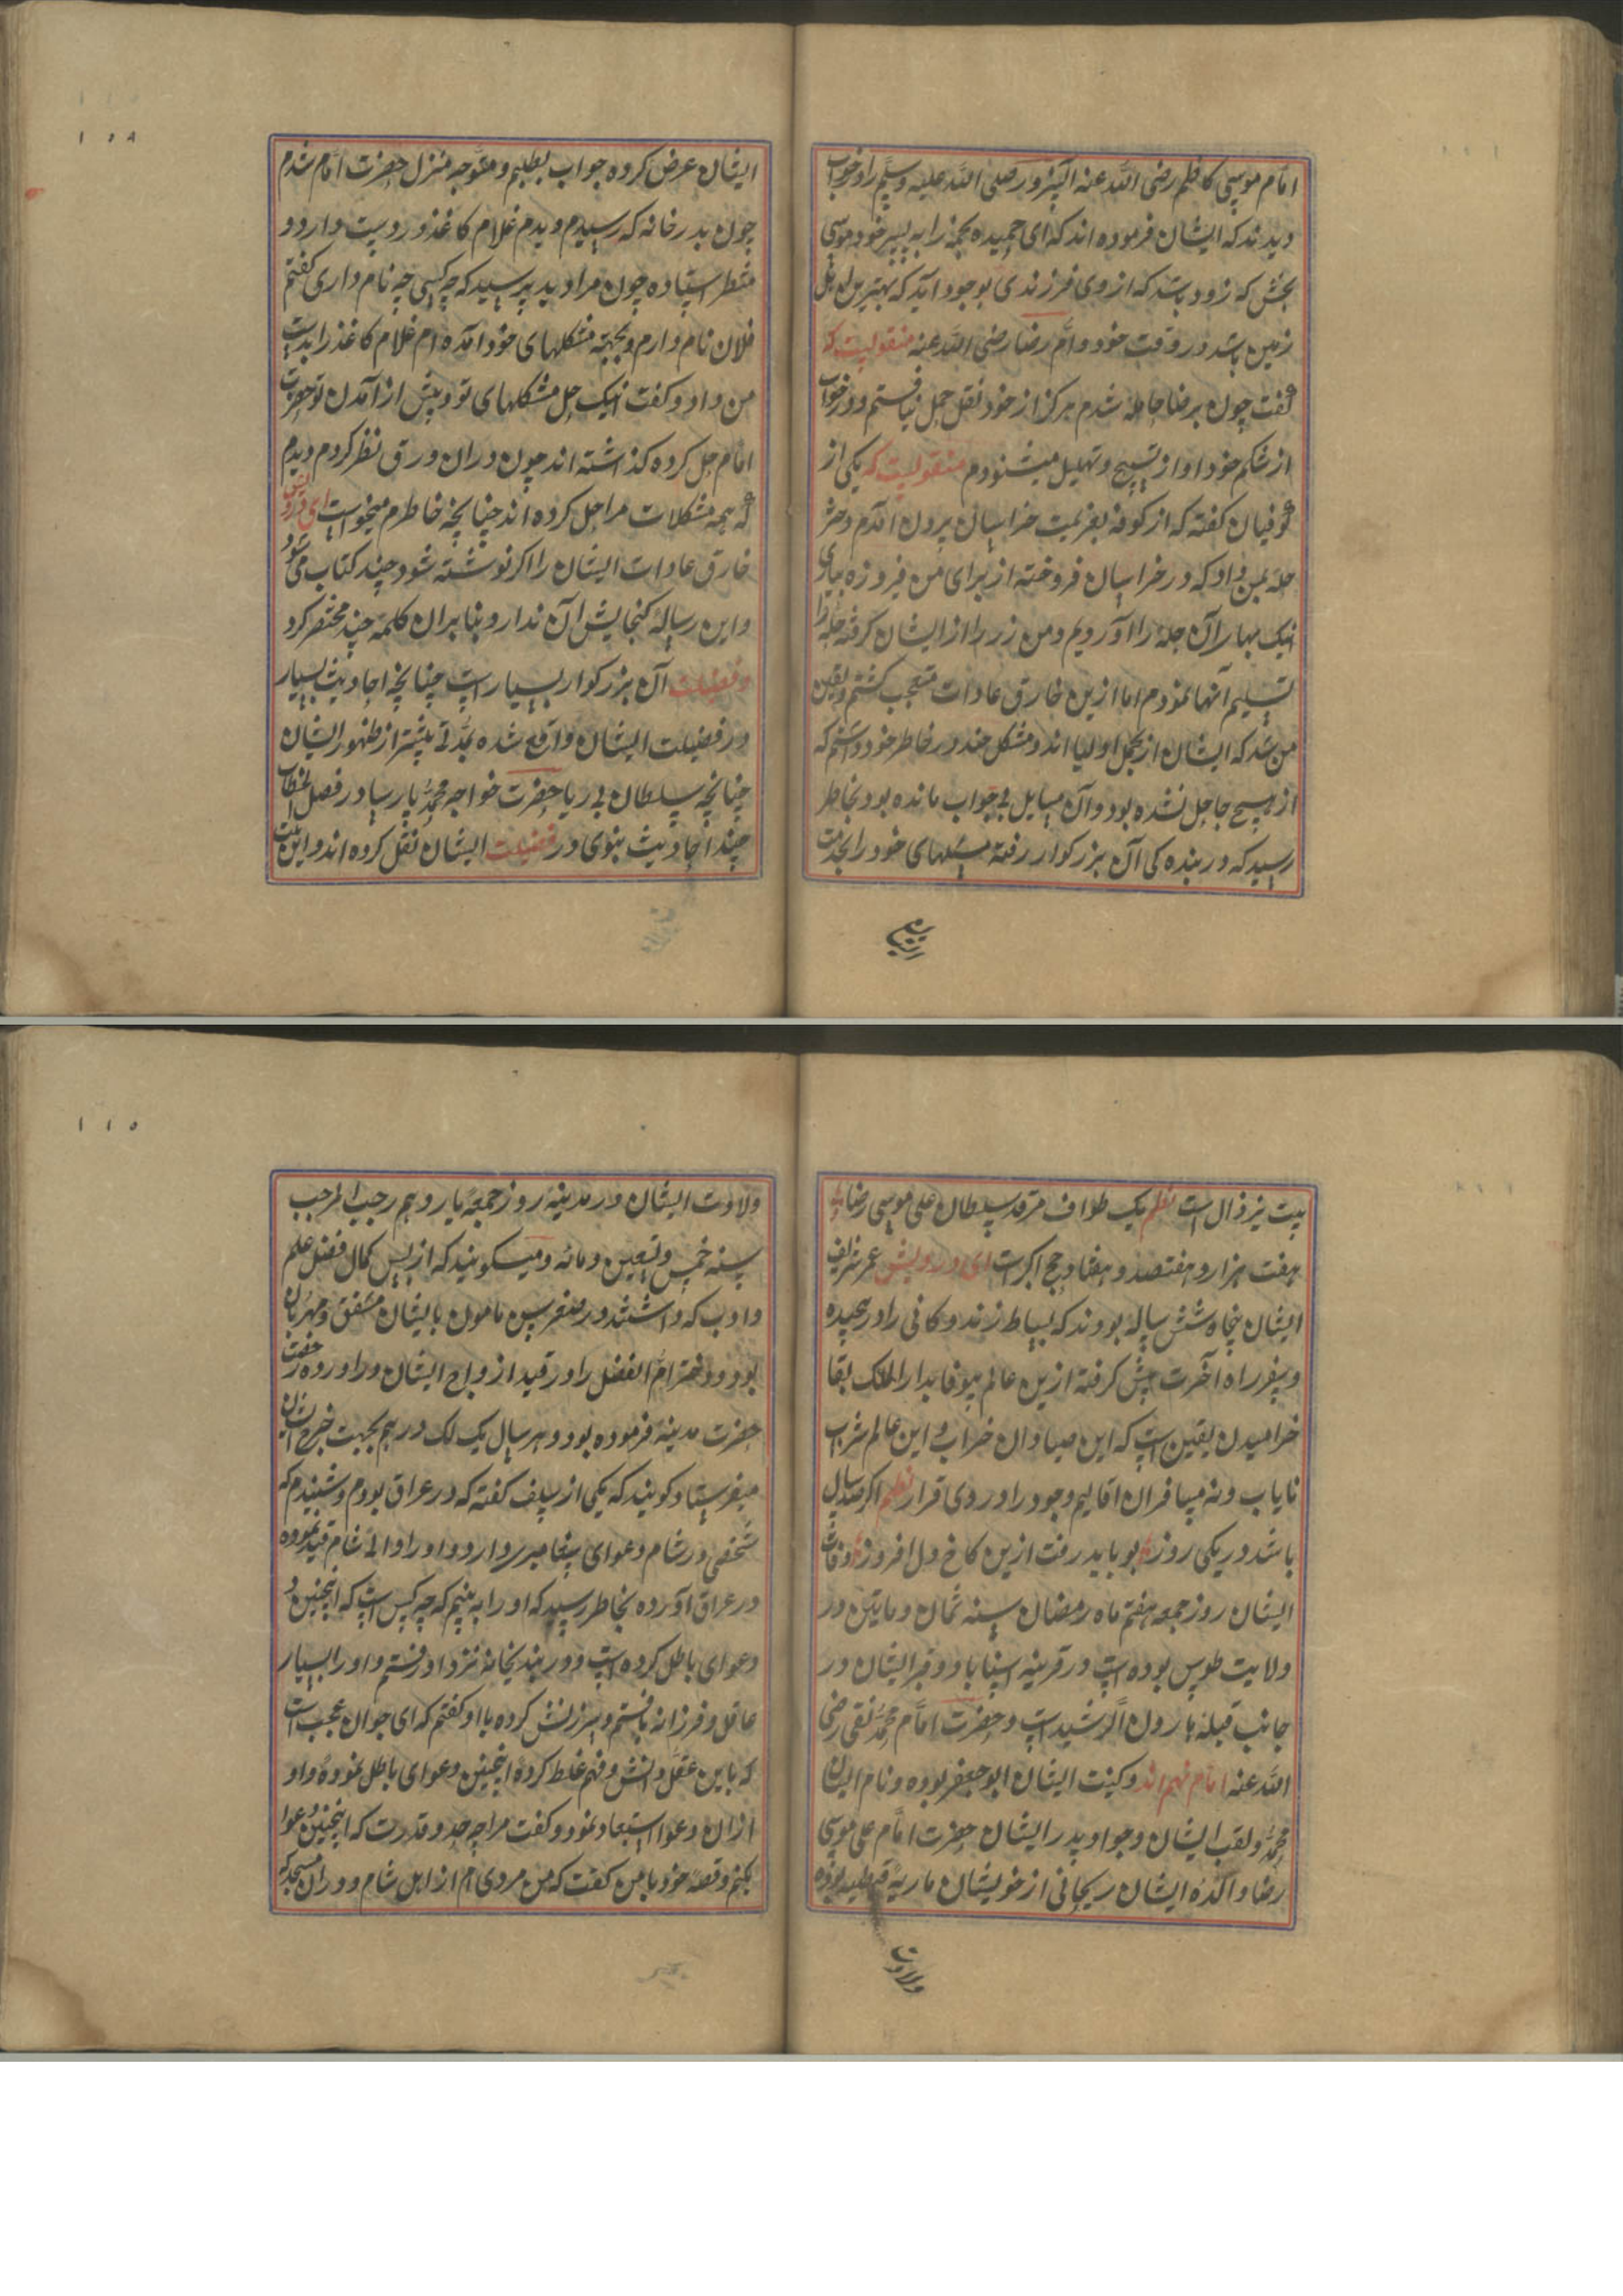 امام موسی کاظم رضی الله عنه آنسرور صلی الله علیه وسلم را در خواب
دیدند که ایشان فرموده اند که ای حمیده نجمه را به پسر خود موسی
بخش که زود باشد که از وی فرزندی بوجود آید که بهترین اهل
زمین باشد در وقت خود و اُم رضا رضی الله عنه منقولیست که
گفت چون برضا حامله شدم هرگز از خود ثقل حمل نیافتم و در خواب
از شکم خود اواز تسبیح و تهلیل میشنودم منقولیست که یکی از
کوفیان گفته که از کوفه بعزیمت خراسان برون آمدم دختر
حله بمن داد که در خراسان فروخته از برای من فیروزه بیاری
اینک بهار آن حله را آوردیم و من زر را از ایشان گرفته حله را
تسلیم آنها نمودم اما ازین خارق عادات متعجب گشتم و یقین
من شد که ایشان از کمل اولیا اند و مشکل چند در خاطر خود داشتم که
از هیچ جا حل نشده بود و آن مسایل بی جواب مانده بود بخاطر
رسید که در بنده کی آن بزرکوار رفته مسئلهای خود را بخدمت
ایشان عرض کرده جواب بطلبم و متوجه منزل حضرت امام شدم
چون بدر خانه که رسیدم دیدم غلام کاغذ در دست دارد و
منتظر استاده چون مرا دید پرسید که چه کسی چه نام داری گفتم
فلان نام دارم و بجهة مشکلهای خود آمده ام غلام کاغذ را بدست
من داد و گفت اینک حل مشکلهای تو و پیش از آمدن تو حضرت
امام حل کرده گذاشته اند چون در آن ورق نظر کردم دیدم
که همه مشکلات مرا حل کرده اند چنانچه خاطرم میخواست ای درویش
خارق عادات ایشان را اگر نوشته شود چند کتاب می شود
و این رساله گنجایش آن ندارد بنابران کلمهٔ چند مختصر کرد
و فضیلت آن بزرکوار بسیار است چنانچه احادیث بسیار
در فضیلت ایشان واقع شده بمدتی پیشتر از ظهور ایشان
چنانچه سلطان بی ریا حضرت خواجه محمد پارسا در فصل الخطاب
چند احادیث نبوی در فضیلت ایشان نقل کرده اند و این بیت
بیت نیز دال است نظم یک طواف مرقد سلطان علی موسی رضا
هفت هزار و هفتصد و هفتاد حج اکبر است ای درویش عمر شریف
ایشان پنجاه شش ساله بودند که بساط زندگانی را در پیچیده
و سفر راه آخرت پیش گرفته ازین عالم بیوفا بدار الملک بقا
خرامیدن یقین است که این صیادان خراب این عالم شراب
نایاب و نه مسافران اقالیم وجود را در وی قرار نظم اگر صد سال
باشد در یکی روز بو باید رفت ازین کاخ دل افروز وفات
ایشان روز جمعه هفتم ماه رمضان سنه ثمان و مایتین در
ولایت طوس بوده است در قرینه سناباد و قبر ایشان در
جانب قبله هارون الرشید است و حضرت امام محمد تقی رضی
الله عنه امام نهم اند و کنیت ایشان ابو جعفر بوده و نام ایشان
محمد و لقب ایشان وجواد پدر ایشان حضرت امام علی موسی
رضا و والدهٔ ایشان ریحانی از خویشان ماریه قبطیه بوده
ولادت
ولادت ایشان در مدینه روز جمعه یازدهم رجب المرجب
سنه خمس و تسعین و مائه و میگویند که از بس کمال فضل علم
و ادب که داشتند در صغر سن مامون با ایشان مشفق و مهربان
بود و دختر ام الفضل را در قید ازواج ایشان در آورده رخصت
حضرت مدینه فرموده بود و هر سال یک لک درهم بجهت خرج ایشان
میفرستاد و گویند که یکی از سلف گفته که در عراق بودم و شنیدم که
شخصی در شام دعوای پیغامبری دارد و او را والی شام قید نموده
در عراق آورده بخاطر رسید که او را به بینم که چه کس است که اینچنین
دعوای باطل کرده است و در بندیخانه نزد او رفتم و او را بسیار
عاقل و فرزانه یافتم و سرزنش کرده با او گفتم که ای جوان عجب است
که باین عقل و دانش و فهم غلط کردهٔ اینچنین دعوای باطل نمودهٔ و او
از آن دعوا استبعاد نمود و گفت مرا چه حد و قدرت که اینچنین دعوا
بکنم و قصهٔ خود با من گفت که من مردی ام از اهل شام و در آن مسجد که